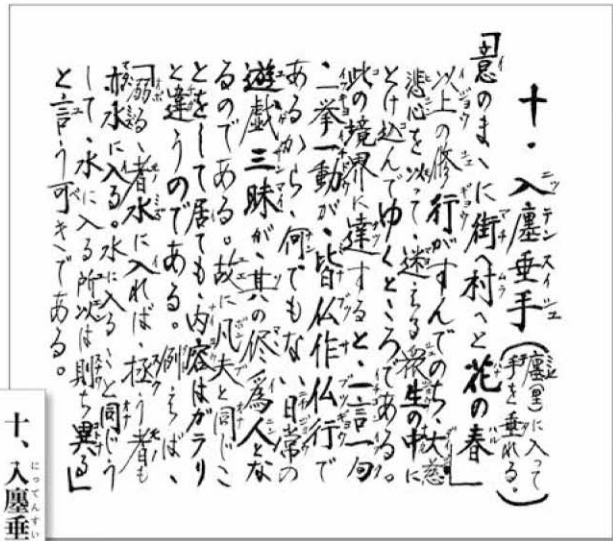 十・入鄽垂手(鄽(里)に入って手を垂れる。)
「意のまゝに街へ村へと花の春」
以上の修行がすんでのち、大慈
悲心を以って、迷える衆生の中に
とけ込んでゆくところである。
此の境界に達すると、一言一句
、一挙一動が、皆仏作仏行で
あるから、何でもない、日常の
遊戯三昧が、其の儘為人とな
るのである。故に凡夫と同じこ
とをして居ても、内容はガラリ
と違うのである。例えば、
「溺るゝ者水に入れば、拯う者も
亦水に入る。水に入ることと同じう
して、水に入る所以は則ち異る」
と言う可きである。
十、入鄽垂